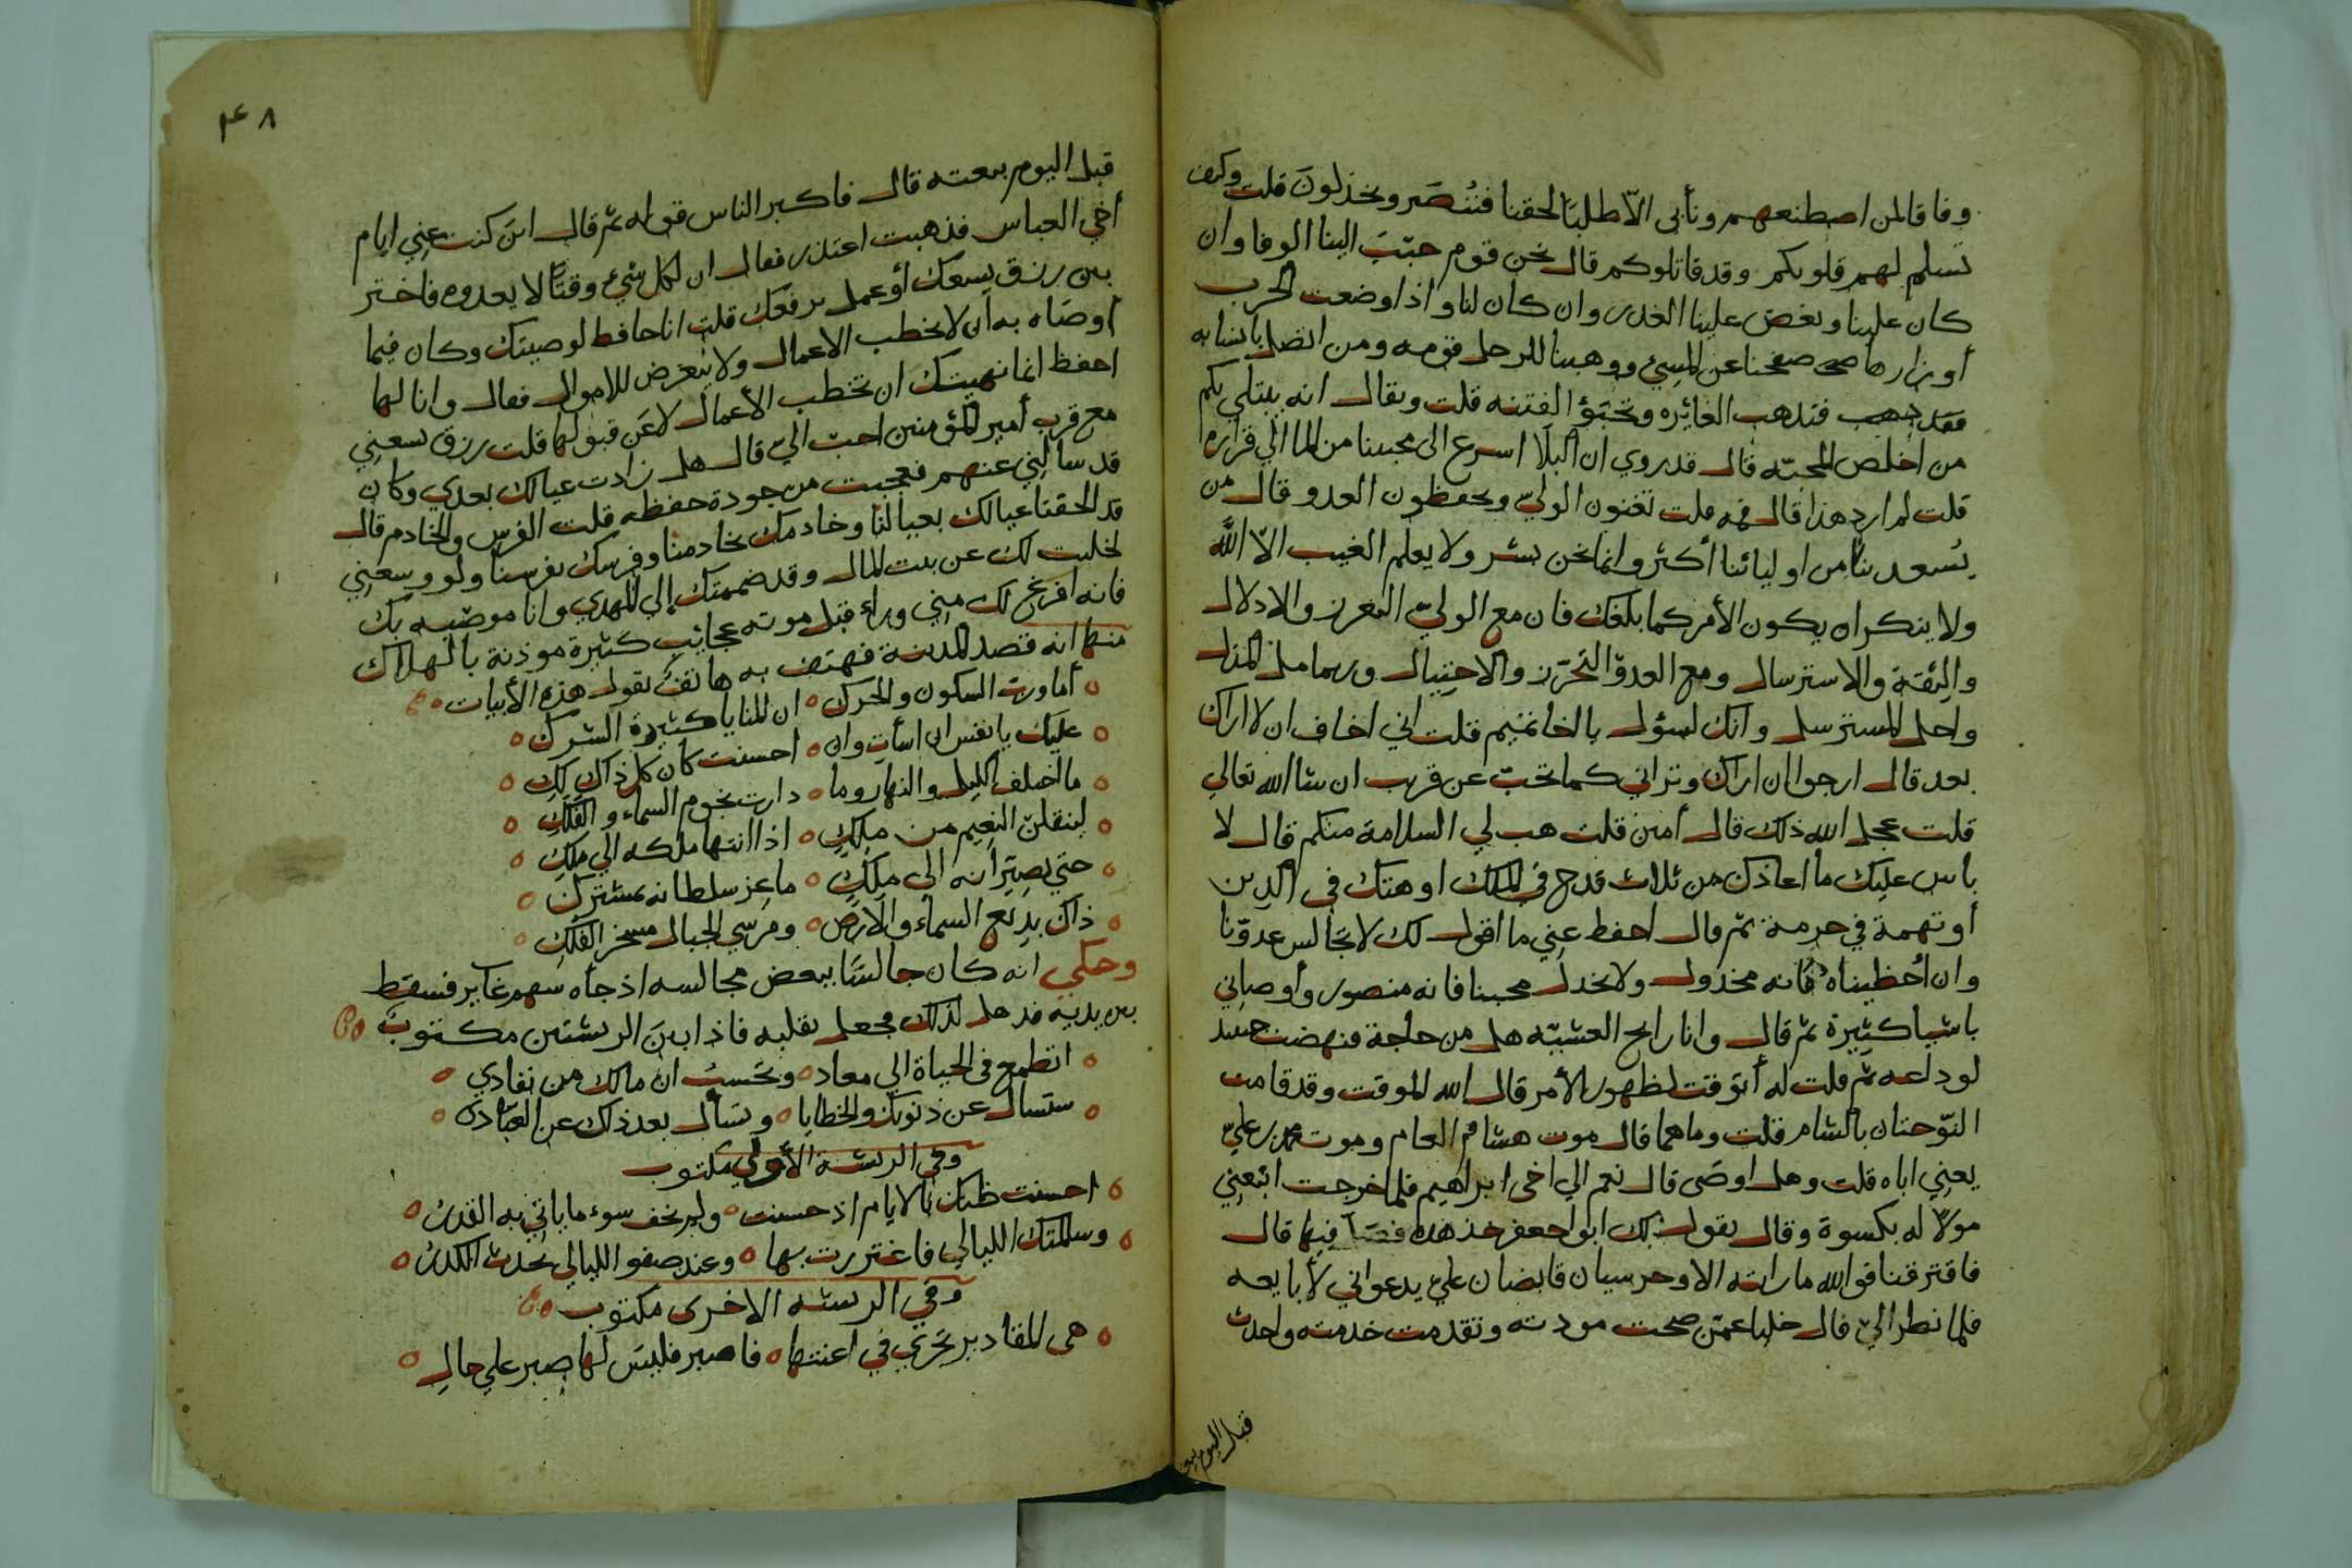 وفاقا لمن اصطنعهم ونأبى الا طلبا لحقنا فننصر ويخذلون قلت وكيف
تسلم لهم قلوبكم وقد قاتلوكم قال نحن قوم حبب الينا الوفا وان
كان علينا وبغض علينا الغدر وان كان لنا واذا وضعت الحرب
أوزارها صفحنا عن المسيء ووهبنا للرجل قومه ومن اتصل باسبابه
فتذهب الغائره وتخبؤ الفتنه قلت ويقال انه يبتلي بكم
من اخلص المحبّه قال قد روي ان البلا اسرع الى محبينا من الما الي قراره
قلت لم ارد هذا قال فمه قلت تعنون الوليّ ويحفظون العدو قال من
يُسعد بنا من اوليائنا أكثر وانما نحن بشر ولا يعلم الغيب الاّ الله
ولا ينكر ان يكون الأمر كما بلغك فان مع الوليّ التعزز والادلال
والثقة والاسترسال ومع العدوّ التحرّز والاحتيال وربما مل المدل
واحل المسترسل وانك لسؤل يا اخا تميم قلت اني اخاف ان لا اراك
بعد قال ارجوا ان اراك وتراني كما تحبّ عن قريب ان شا الله تعالي
قلت عجل الله ذلك قال أمين قلت هب لي السلامة منكم قال لا
بأس عليك ما أعاذك من ثلاث قدح في الملك او هتك في الدين
أو تهمة في حرمة ثم قال احفظ عني ما اقول لك لا تجالس عدوّنا
وان أحظيناه فانه مخذول ولا يخذل محبينا فانه منصور وأوصاني
باشيا كثيرة ثم قال وانا رايح العشيّه هل من حاجة فنهضت حينيد
لوداعه ثم قلت له أتوقت لظهور الأمر قال الله الموقت وقد قامت
النوّحتان بالشام قلت وما هما قال موت هشام العام وموت محمد بن عليّ
يعني اباه قلت وهل اوصى قال نعم الي اخى ابراهيم فلما خرجت اتبعني
مولا له بكسوة وقال يقول لك ابو جعفر خذ هذه فصل فيها قال
فافترقنا فوالله ما رايته الا وحرسيان قابضان علي يدعواني لأبايعه
فلما نظر اليّ قال خليا عمن صحت مودته وتقدمت خدمته واخذت
قبل اليوم بيع
٤٨
قبل اليوم بيعته قال فاكبر الناس قوله ثم قال اين كنت عني ايام
أخي العباس فذهبت اعتذر فقال ان لكل شيء وقتًا لا يعدوه فاختر
بين رزق يسعك أو عمل يرفعك قلت انا حافظ لوصيتك وكان فيما
أوصاه به أن لا يخطب الاعمال ولا يتعرض للاموال فقال وانا لها
احفظ انما نهيتك ان تخطب الأعمال لا عن قبولها قلت رزق يسعني
مع قرب أمير المؤمنين احبّ اليّ قال هل زادت عيالك بعدي وكان
قد سألني عنهم فعجبت من جودة حفظه قلت الفرس والخادم قال
قد الحقنا عيالك بعيالنا وخادمك بخادمنا وفرسك بفرسنا ولو وسعني
لحليت لك عن بيت المال وقد ضممتك إلي المهدي وانا موصيه بك
فانه افرغ لك مني وراء قبل موته عجائب كثيرة موذنة بالهلاك
منها انه قصد المدينة فهتف به هاتف يقول هذه الأبيات
أما ورب السكون والحرك ان المنايا كثيرة الشرك
عليك يا نفس ان اسأت وان احسنت كان كل ذاك لك
ما اختلف الليل والنهار وما دارت نجوم السماء و الفلك
لينقلن النعيم من ملك اذا انتها ملكه الي ملك
حتي يصيرانه الى ملك ما عز سلطانه بمشترك
ذاك بديع السماء والارض ومرسي الجبال مسخر الفلك
وحكي انه كان جالسًا ببعض مجالسه اذ جأه سهم غاير فسقط
بين يديه فذهل لذلك فجعل يقلبه فاذا بين الريشتين مكتوب
اتطمع فى الحياة الي معاد وتحسب ان مالك من نفادي
ستسال عن ذنوبك والخطايا وتسأل بعد ذلك عن العباد
وفي الريشة الأولي مكتوب
احسنت ظنك بالايام اذ حسنت ولم تخف سوء ما ياتي به القدر
وسالمتك الليالي فاغتررت بها وعند صفو الليالي يحدث الكدر
وفي الريشه الاخرى مكتوب
هى المقادير تجري في اعنتها فاصبر فليس لها صبر علي حال